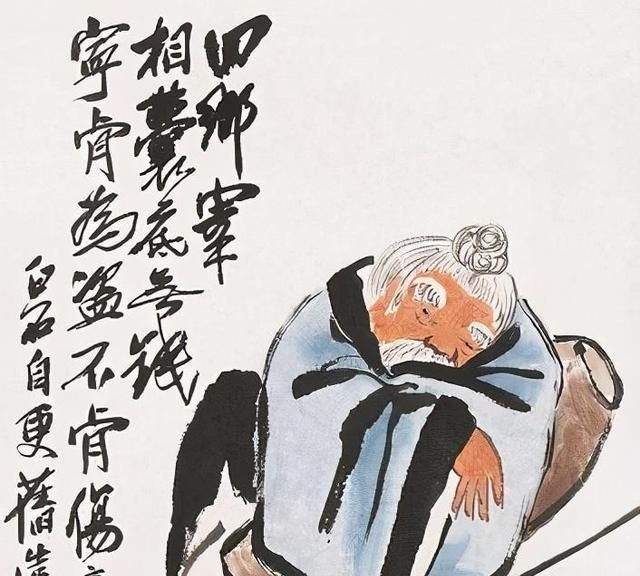 回鄉宰
相囊底無錢
寧肯為盜不肯傷
白石自更舊